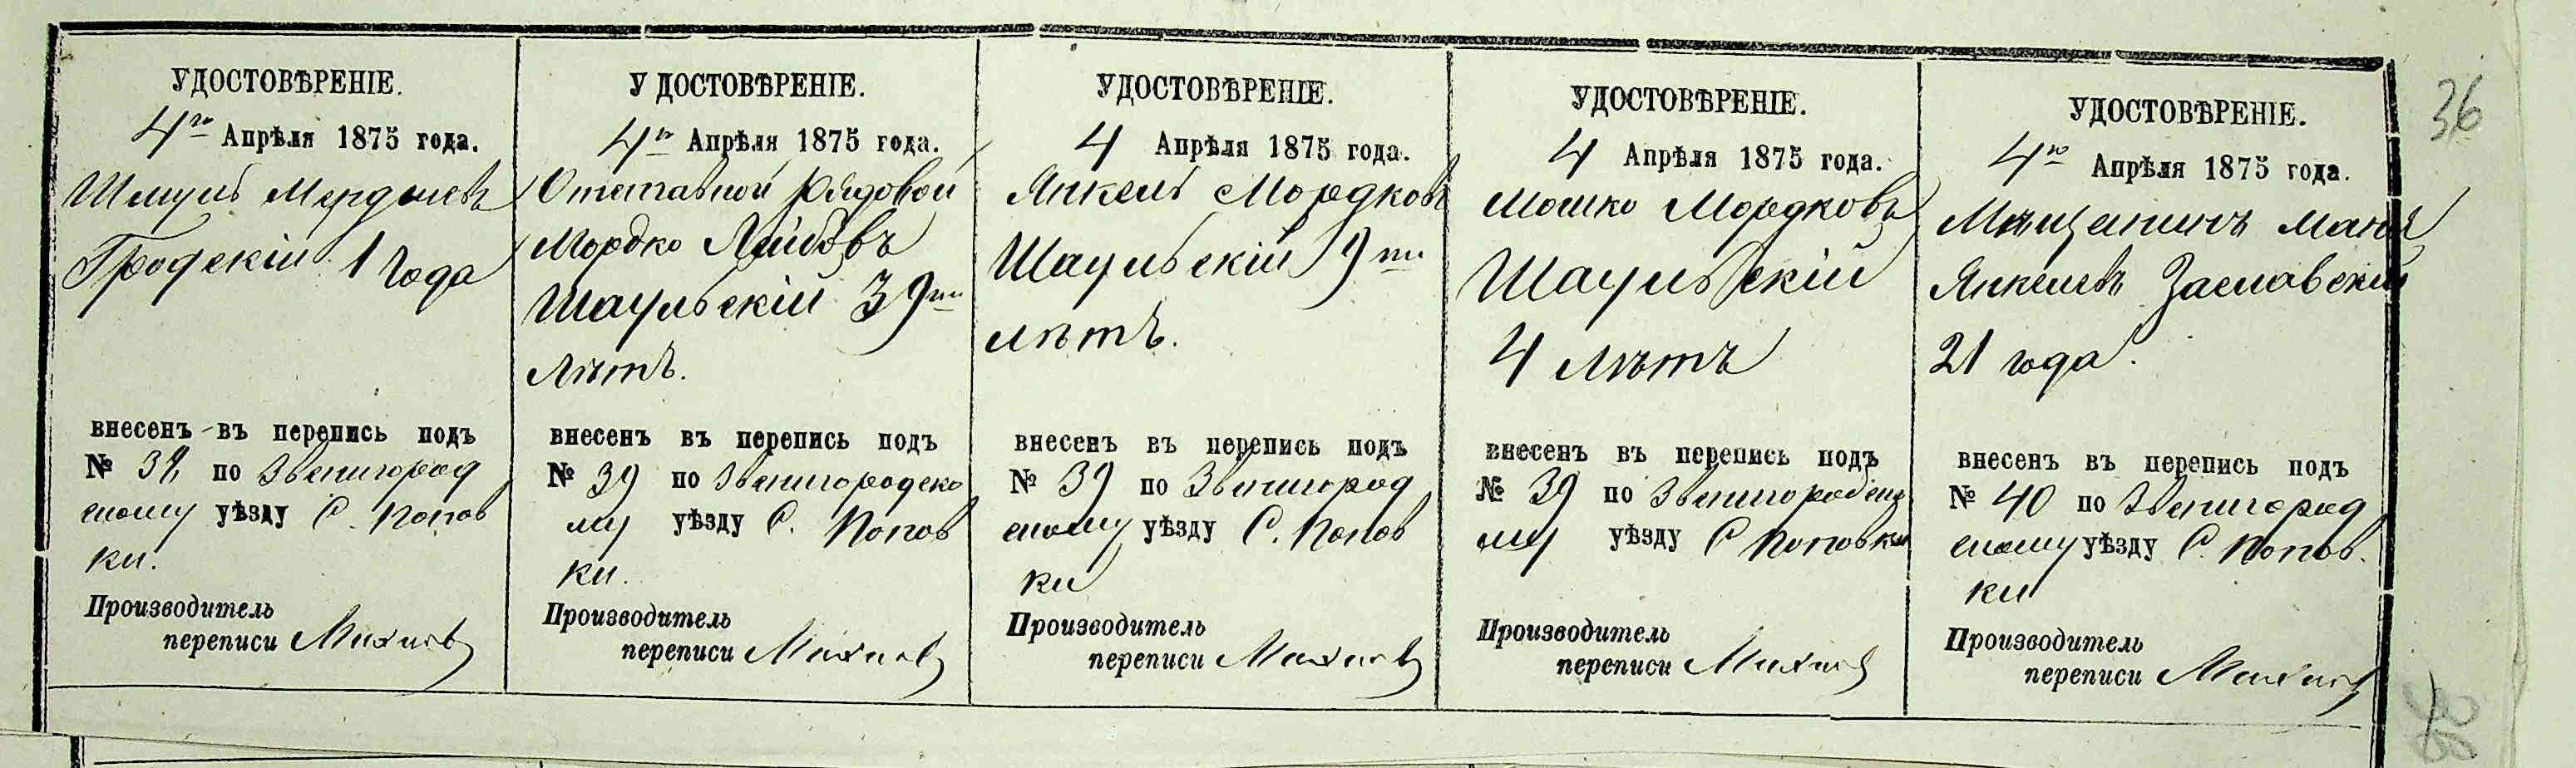 УДОСТОВѢРЕНІЕ.
4го Апрѣля 1875 года.
Шмуль
Гродскій 1 года
внесенъ въ перепись подъ
№ по Звенигород
скому уѣзду С. Попов
ки.
Производитель
переписи
У ДОСТОВѢРЕНІЕ.
4го Апрѣля 1875 года.
Отставной рядовой
Мордко Лейбовъ
Шаульскій 39ти
лѣтъ.
внесенъ въ перепись подъ
№ 39 по Звенигородско
му уѣзду С. Попов
ки.
Производитель
переписи
УДОСТОВѢРЕНІЕ.
4 Апрѣля 1875 года.
Янкель Мордковъ
Шаульскій 9ти
лѣтъ.
внесенъ въ перепись подъ
№ 39 по Звенигород
скому уѣзду С. Попов
ки
Производитель
переписи
УДОСТОВѢРЕНІЕ.
4 Апрѣля 1875 года.
Мошко Мордковъ
Шаульскій
4 лѣтъ
внесенъ въ перепись подъ
№ 39 по Звенигородско
му уѣзду С Поповки
Производитель
переписи
УДОСТОВѢРЕНІЕ.
4го Апрѣля 1875 года.
Мѣщанинъ
Янкелевъ Заславскій
21 года.
внесенъ въ перепись подъ
№ 40 по Звенигород
скому уѣзду С. Попов.
ки
Производитель
переписи
36